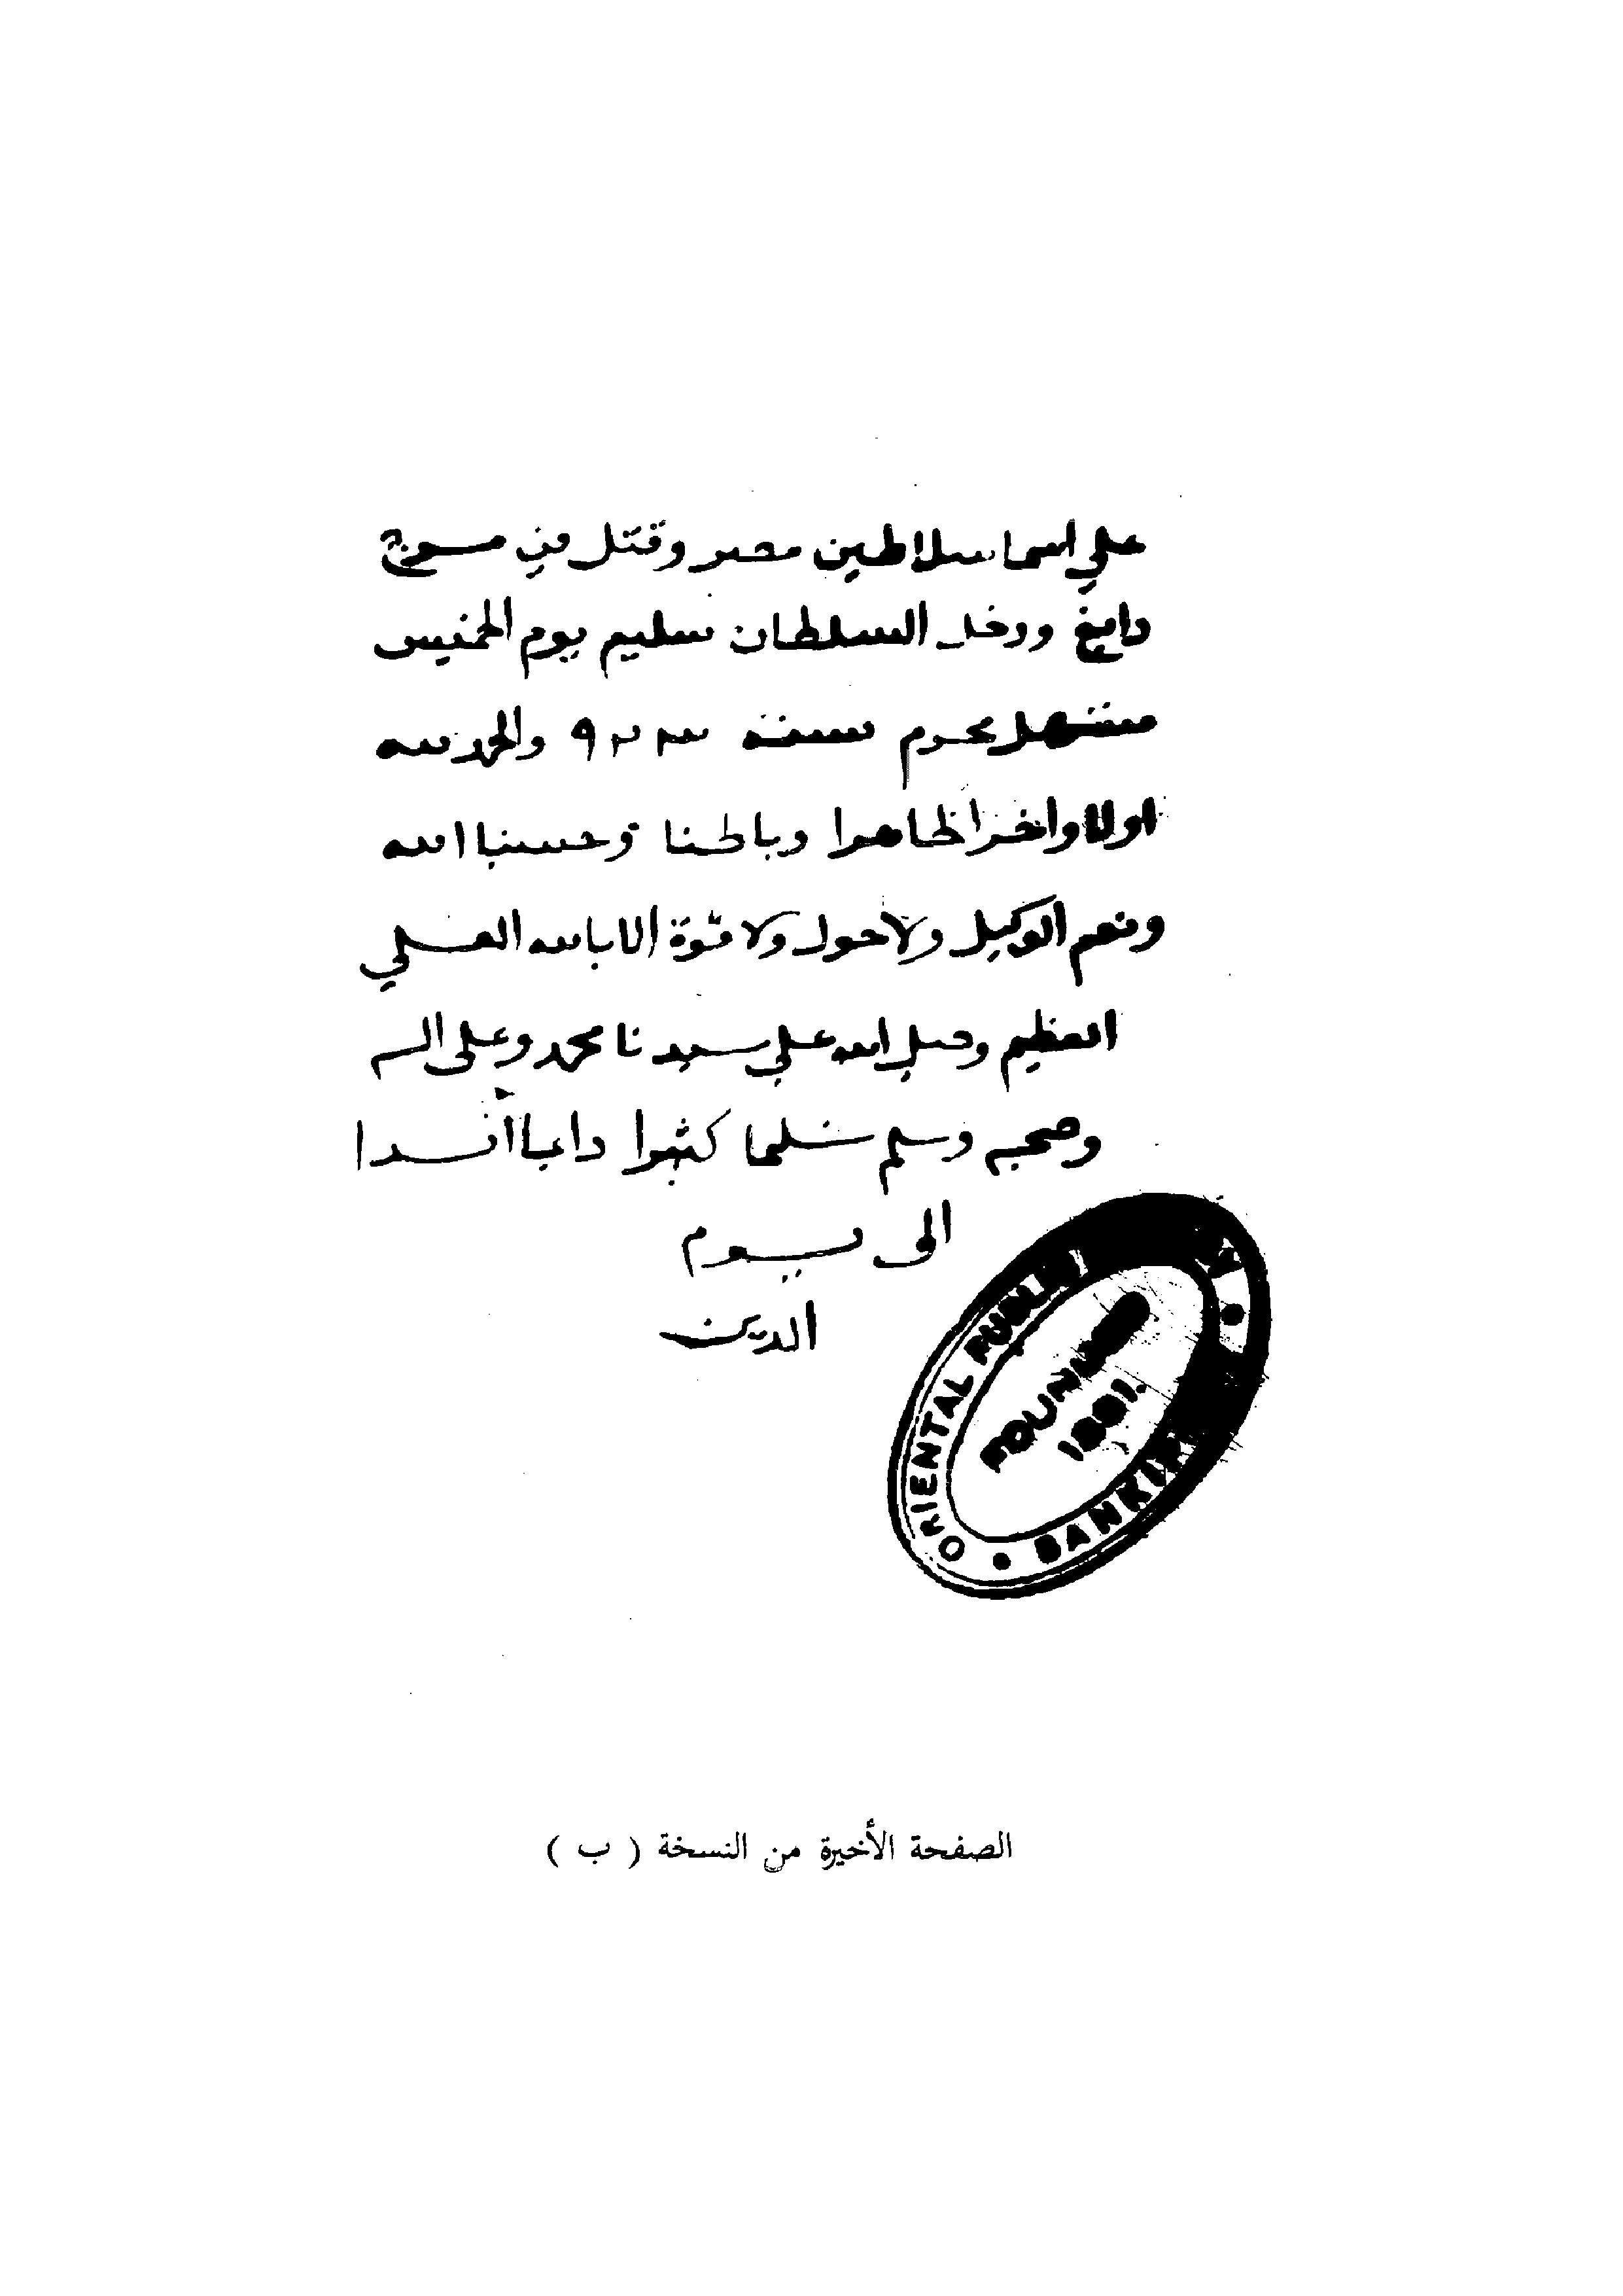 علي اسما سلاطين مصر وقتل في مرج
دابغ ودخل السلطان سليم يوم الخميس
مستهل محرم سنة ٩٢٣ والحمد لله
اولا واخرا ظاهرا وباطنا وحسبنا الله
ونعم الوكيل ولا حول ولا قوة الا بالله العلي
العظيم وصلي الله علي سيدنا محمد وعلى اله
وصحبه وسلم تسليما كثيرا دايما ابدا
الى يوم
الدين
ORIENTAL PUBLIC
FOUND
1891.
BANKIP
الصفحة الأخيرة من النسخة ( ب )